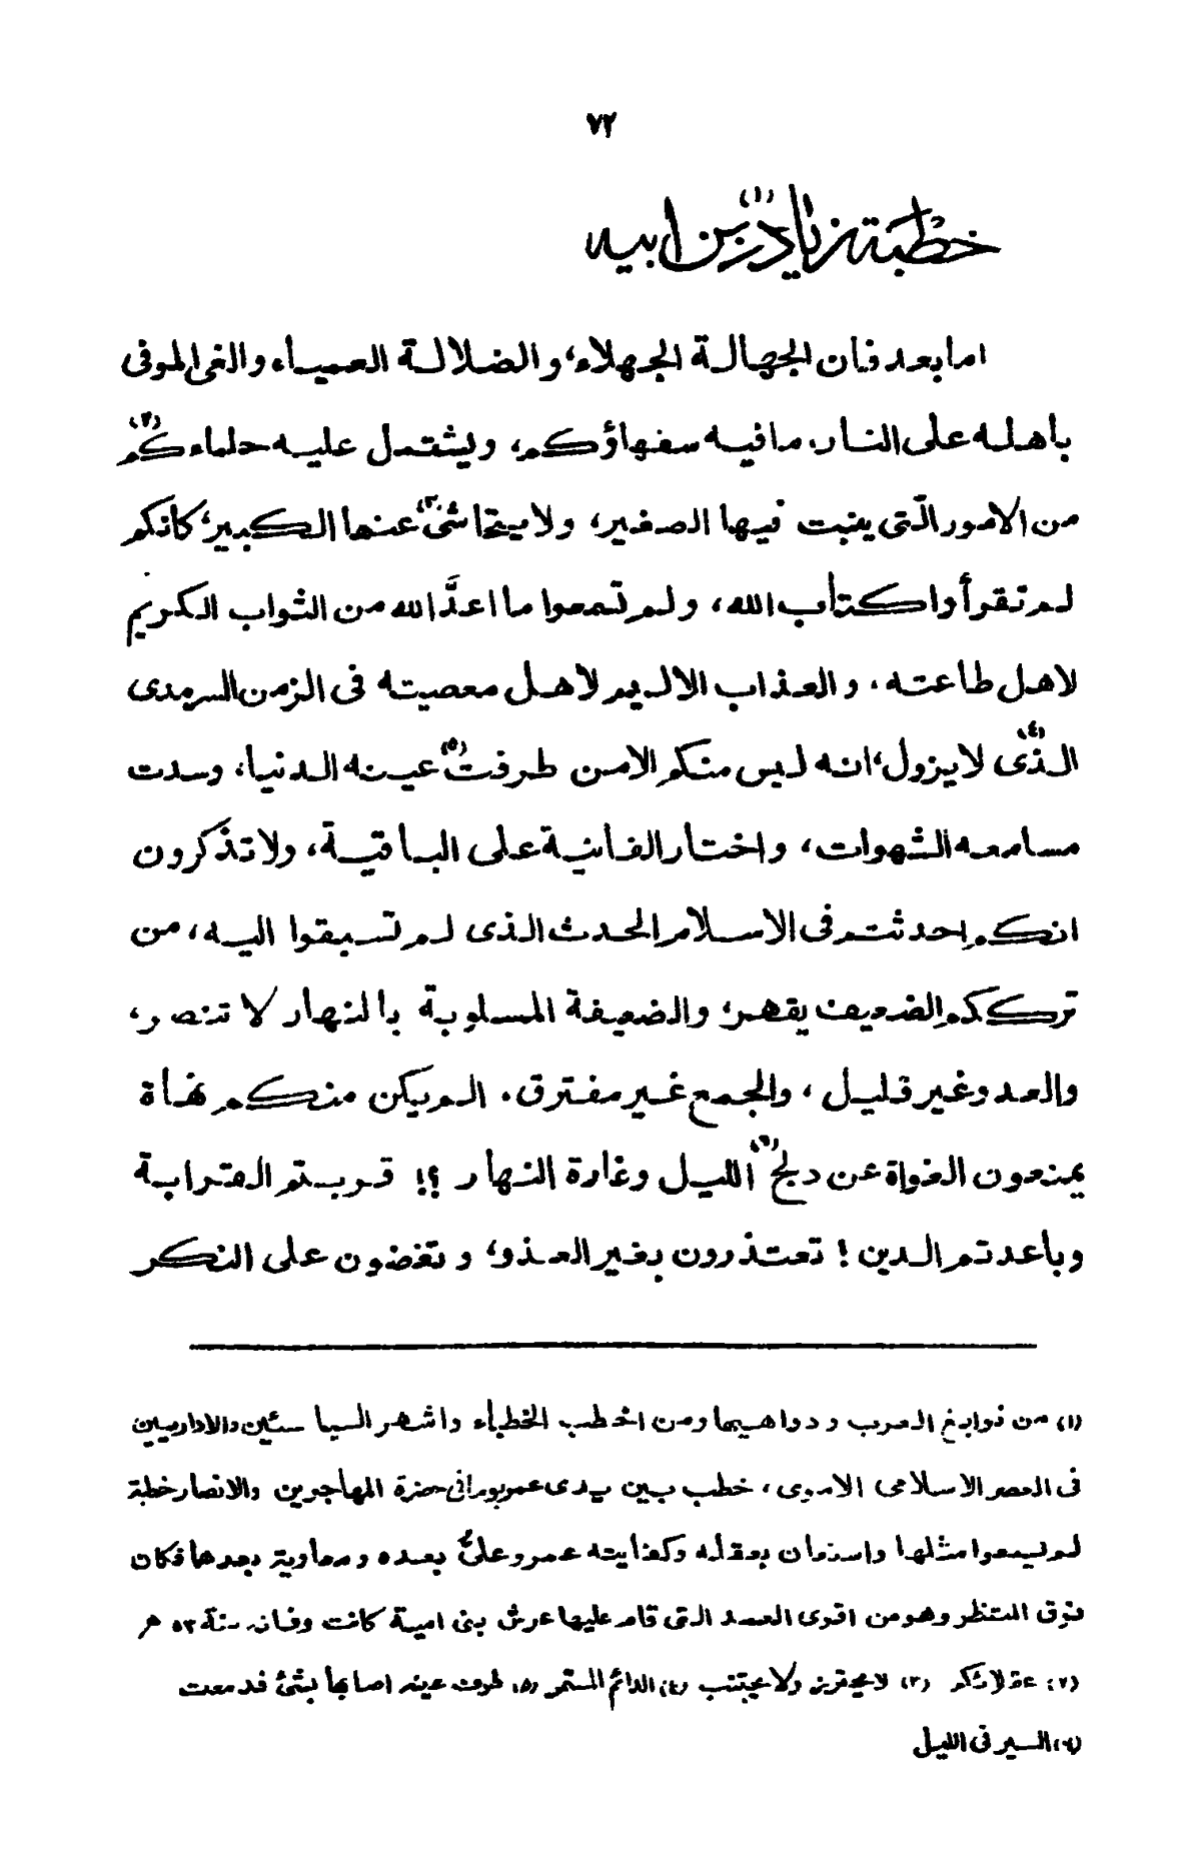 ٧٢
خطبة زياد (١) بن ابيه
اما بعد فان الجهالة الجهلاء، والضلالة العمياء والغي الموفى
باهله على النار، ما فيه سفهاؤكم، ويشتمل عليه حلماءكم (٢)
من الامور التى ينبت فيها الصغير، ولا يتحاشى (٣) عنها الكبير، كانكم
لم تقرأوا كتاب الله، ولم تسمعوا ما اعدَّ الله من الثواب الكريم
لاهل طاعته، والعذاب الاليم لاهل معصيته فى الزمن السرمدى (٤)
الذى لا يزول، انه ليس منكم الا من طرفت (٥) عينه الدنيا، وسدت
مسامعه الشهوات، واختار الفانية على الباقية، ولا تذكرون
انكم احدثتم فى الاسلام الحدث الذى لم تسبقوا اليه، من
ترككم الضعيف يقهر، والضعيفة المسلوبة بالنهار لا تنصر،
والعدد غير قليل، والجمع غير مفترق. الم يكن منكم نهاة
يمنعون الغواة عن دلج (٦) الليل وغارة النهار ؟! قربتم القرابة
وباعدتم الدين ! تعتذرون بغير العذر، وتغضون على النكر
(١) من نوابغ العرب ودواهيها ومن اخطب الخطباء واشهر السياسيين والاداريين
فى العصر الاسلامى الاموى، خطب بين يدى عمر يوم فى حضرة المهاجرين والانصار خطبة
لم يسمعوا مثلها واستعان بعقله وكفايته عمر وعلىّ بعده ومعاوية بعدهما فكان
فوق المنتظر وهو من اقوى العمد التى قام عليها عرش بنى امية كانت وفاته سنة ٥٣ هـ
(٢) عقلائكم (٣) لا يحترز ولا يجتنب (٤) الدائم المستمر (٥) طرف عينه اصابها بشئ فدمعت
(٦) السير فى الليل